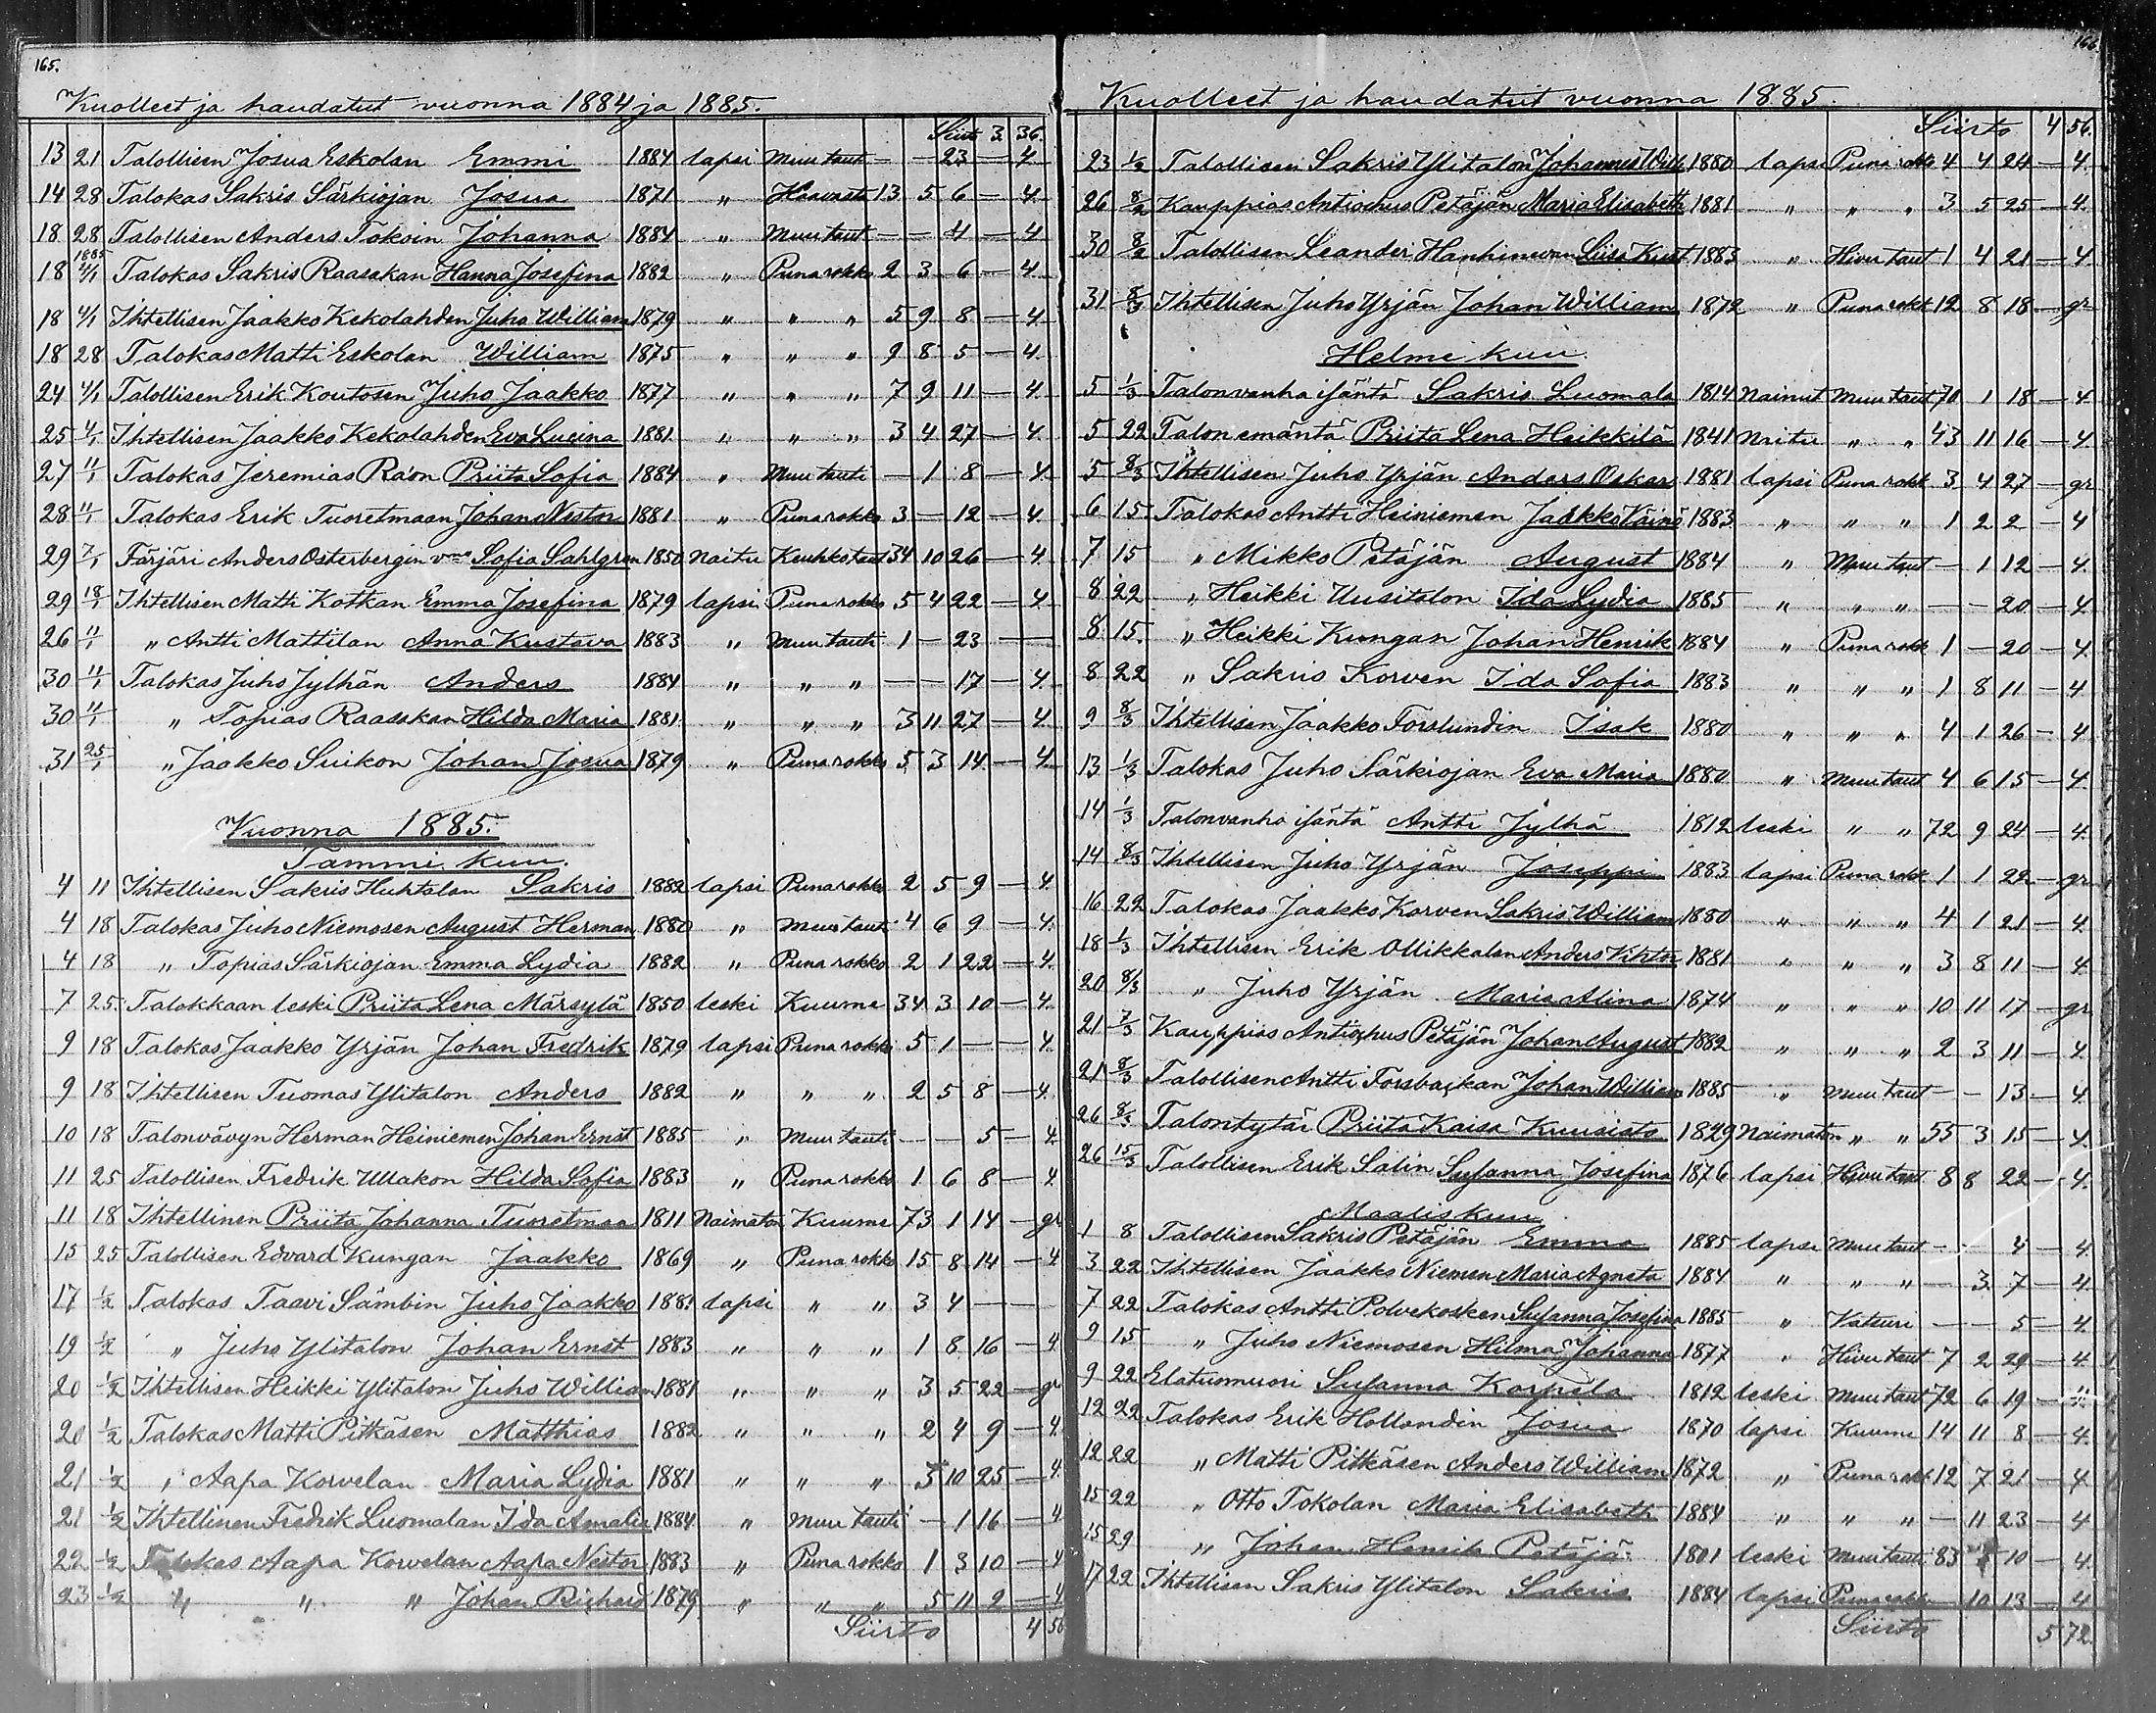 165.
Kuolleet ja haudatut vuonna 1884 ja 1885.
Siirto 3. 36.
13 21 Talollisen Josua Eskolan Emmi 1884 lapsi Muu taut — — 23 — 4
14 28 Talokas Sakris Särkiojan Josua 1871 " 13 5 6 — 4.
18 28 Talollisen Anders Tokoin Johanna 1884 " Muu taut — — 4 — 4
1885
18 4/1 Talokas Sakris Raasakan Hanna Josefina 1882 " Puna rokko 2 3 6 — 4.
18 4/1 Ihtellisen Jaakko Kekolahden Juho William 1879 " " " 5 9 8 — 4.
18 28 Talokas Matti Eskolan William 1875 " " " 9 8 5 — 4.
24 4/1 Talollisen Erik Koutosen Juho Jaakko 1877 " " " 7 9 11 — 4.
25 4/1 Ihtellisen Jaakko Kekolahden Eva Lucina 1881 " " " 3 4 27 — 4.
27 11/1 Talokas Jeremias Raon Priita Sofia 1884 " Muu tauti — 1 8 — 4.
28 11/1 Talokas Erik Tuoretmaan Johan Nestor 1881 " Puna rokko 3 — 12 — 4.
29 7/1 Färjäri Anders Österbergin Sofia Sahlgren 1850 Naitu Keuhkotaut 34 10 26 — 4.
29 18/1 Ihtellisen Matti Kotkan Emma Josefina 1879 lapsi Puna rokko 5 4 22 — 4
26 11/1 " Antti Mattilan Anna Kustava 1883 " Muu tauti 1 — 23 —
30 11/1 Talokas Juho Jylhän Anders 1884 " " " — — 17 — 4.
30 11/1 " Topias Raasakan Hilda Maria 1881. " " " 3 11 27 — 4.
31 25/1 " Jaakko Suikon Johan Josua 1879 " Puna rokko 5 3 14. — 4.
Vuonna 1885.
Tammi kuu.
4 11 Ihtellisen Sakris Huhtalan Sakris 1882 lapsi Puna rokko 2 5 9 — 4.
4 18 Talokas Juho Niemosen August Herman 1880 " Muu taut 4 6 9 — 4.
4 18 " Topias Särkiojan Emma Lydia 1882 " Puna rokko 2 1 22 — 4.
7 25 Talokkaan leski Priita Lena Märsylä 1850 leski Kuume 34 3 10 — 4.
9 18 Talokas Jaakko Yrjän Johan Fredrik 1879 lapsi Puna rokko 5 1 — — 4.
9 18 Ihtellisen Tuomas Ylitalon Anders 1882 " " " 2 5 8 — 4.
10 18 Talonvävyn Herman Heiniemen Johan Ernst 1885 " Muu tauti — — 5 — 4.
11 25 Talollisen Fredrik Ullakon Hilda Sofia 1883 " Puna rokko 1 6 8 — 4.
11 18 Ihtellinen Priita Johanna Tuoretmaa 1811 Naimaton Kuume 73 1 14 — gr
15 25 Talollisen Edvard Kungan Jaakko 1869 " Puna rokko 15 8 14 — 4.
17 1/2 Talokas Taavi Sämbin Juho Jaakko 1881 lapsi " " 3 4 — —
19 1/2 " Juho Ylitalon Johan Ernst 1883 " " " 1 8 16 — 4.
20 1/2 Ihtellisen Heikki Ylitalon Juho William 1881 " " " 3 5 22 — gr
20 1/2 Talokas Matti Pitkäsen Matthias 1882 " " " 2 4 9 — 4.
21 1/2 " Aapa Korvelan Maria Lydia 1881 " " " 3 10 25 — 4.
21 1/2 Ihtellinen Fredrik Luomalan Ida Amalia 1884 " Muu tauti — 1 16 — 4
22 1/2 Talokas Aapa Korvelan Aapa Nestor 1883 " Puna rokko 1 3 10 — 4
23 1/2 " " " Johan Richard 1879 " " " 5 11 2 — 4
Siirto 4 56
166.
Kuolleet ja haudatut vuonna 1885.
Siirto 4 56.
23 1/2 Talollisen Sakris Ylitalon Johannes Will 1880 lapsi Puna rokko 4 4 24 — 4.
26 8/2 Kauppias Antiochus Petäjän Maria Elisabeth 1881 " " " 3 5 25 — 4.
30 8/2 Talollisen Leander Hanhinevan Liisa Kust 1883 " Hivu taut 1 4 21 — 4
31 8/3 Ihtellisen Juho Yrjän Johan William 1872 " Puna rokk 12 8 18 — gr
Helmi kuu.
5 1/3 Talonvanha isäntä Sakris Luomala 1814 Nainut Muu taut 70 1 18 — 4.
5 22 Talon emäntä Priita Lena Heikkilä 1841 Naitu " " 43 11 16 — 4.
5 8/3 Ihtellisen Juho Yrjän Anders Oskar 1881 lapsi Puna rokk 3 4 27 — gr
6 15 Talokas Antti Heiniemen Jaakko Väinö 1883 " " " 1 2 2 — 4
7 15 " Mikko Petäjän August 1884 " Muu taut — 1 12 — 4.
8 22 " Heikki Uusitalon Ida Lydia 1885 " " " — — 20 — 4.
8 15. " Heikki Kungan Johan Henrik 1884 " Puna rokk 1 — 20 — 4.
8 22 " Sakris Korven Ida Sofia 1883 " " " 1 8 11 — 4
9 8/3 Ihtellisen Jaakko Forslundin Isak 1880 " " " 4 1 26 — 4
13 1/3 Talokas Juho Särkiojan Eva Maria 1880 " Muu taut 4 6 15 — 4.
14 1/3 Talonvanha isäntä Antti Jylhä 1812 leski " " 72 9 24 — 4.
14 8/3 Ihtellisen Juho Yrjän Joseppi 1883 lapsi Puna rokk 1 1 22 — gr
16 22 Talokas Jaakko Korven Sakris William 1880 " " " 4 1 21 — 4
18 1/3 Ihtellisen Erik Ollikkalan Anders Vihtor 1881 " " " 3 8 11 — 4
20 8/3 " Juho Yrjän Maria Alina 1874 " " " 10 11 17 — gr
21 7/3 Kauppias Antiochus Petäjän Johan August 1882 " " " 2 3 11 — 4
21 8/3 Talollisen Antti Forsbackan Johan William 1885 " Muu taut — — 13 — 4
26 8/3 Talontytär Priita Kaisa Kuusisto 1829 Naimaton " " 55 3 15 — 4.
26 15/3 Talollisen Erik Salin Susanna Josefina 1876 lapsi Hivu taut 8 8 22 — 4.
Maalis kuu
1 8 Talollisen Sakris Petäjän Emma 1885 lapsi Muu taut — — 4 — 4.
3 22 Ihtellisen Jaakko Niemen Maria Agneta 1884 " " " — 3 7 — 4.
7 22 Talokas Antti Polvekosken Susanna Josefina 1885 " — — 5 — 4.
9 15 " Juho Niemosen Hilma Johanna 1877 " Hivu taut 7 2 29 — 4.
9 22 Elatusmuori Susanna Karpela 1812 leski Muu taut 72 6 19 —
12 22 Talokas Erik Hollandin Josua 1870 lapsi Kuume 14 11 8 — 4.
12 22 " Matti Pitkäsen Anders William 1872 " Puna rokk 12 7 21 — 4
15 22 " Otto Tokolan Maria Elisabeth 1884 " " " — 11 23 — 4
15 29 " Johan Henrik Petäjä 1801 leski Muu tauti 83 10 — 4.
17 22 Ihtellisen Sakris Ylitalon Sakris 1884 lapsi Puna rokko — 10 13 — 4
Siirto 5 72.